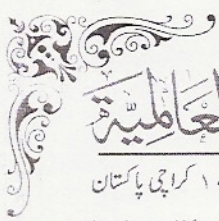 العَالَمِيَّة
۱ کراچی پاکستان